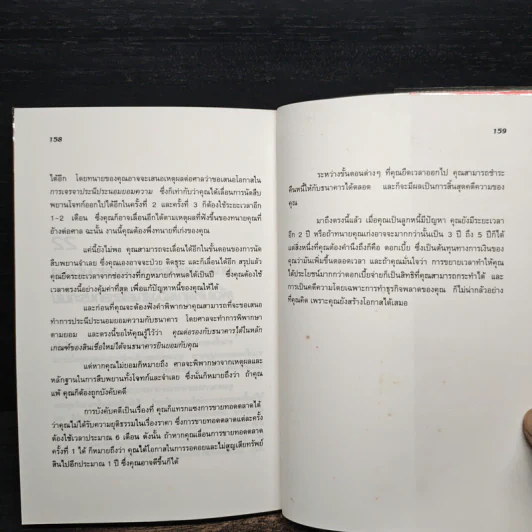 158
ได้อีก โดยทนายของคุณอาจจะเสนอเหตุผลต่อศาลว่าขอเสนอโอกาสใน
การเจรจาประนีประนอมยอมความ ซึ่งก็เท่ากับว่าคุณได้เลื่อนการนัดสืบ
พยานโจทก์ออกไปได้อีกในครั้งที่ 2 และครั้งที่ 3 ก็ต้องใช้ระยะเวลาอีก
1-2 เดือน ซึ่งคุณก็อาจเลื่อนอีกได้ตามเหตุผลที่ฟังขึ้นของทนายคุณที่
อ้างต่อศาล ฉะนั้น งานนี้คุณต้องพึ่งทนายที่เก่งของคุณ
แค่นี้ยังไม่พอ คุณสามารถจะเลื่อนได้อีกในขั้นตอนของการนัด
สืบพยานจำเลย ซึ่งคุณเองอาจจะป่วย ติดธุระ และก็เลื่อนได้อีก สรุปแล้ว
คุณยืดระยะเวลาจากช่องว่างที่กฎหมายกำหนดได้เป็นปี ซึ่งคุณต้องใช้
เวลาตรงนี้อย่างคุ้มค่าที่สุด เพื่อแก้ปัญหาหนี้ของคุณให้ได้
และก่อนที่คุณจะต้องฟังคำพิพากษาคุณสามารถที่จะขอเสนอ
ทำการประนีประนอมยอมความกับธนาคาร โดยศาลจะทำการพิพากษา
ตามยอม และตรงนี้ขอให้คุณรู้ไว้ว่า คุณต่อรองกับธนาคารได้ในหลัก
เกณฑ์ของสินเชื่อใหม่ได้จนธนาคารยินยอมกับคุณ
แต่หากคุณไม่ยอมก็หมายถึง ศาลจะพิพากษาจากเหตุผลและ
หลักฐานในการสืบพยานทั้งโจทก์และจำเลย ซึ่งนั่นก็หมายถึงว่า ถ้าคุณ
แพ้ คุณก็ต้องถูกบังคับคดี
การบังคับคดีเป็นเรื่องที่ คุณก็แทรกแซงการขายทอดตลาดได้
ว่าคุณไม่ได้รับความยุติธรรมในเรื่องราคา ซึ่งการขายทอดตลาดแต่ละครั้ง
ต้องใช้เวลาประมาณ 6 เดือน ดังนั้น ถ้าหากคุณเลื่อนการขายทอดตลาด
ครั้งที่ 1 ได้ ก็หมายถึงว่า คุณได้โอกาสในการรอคอยและไม่สูญเสียทรัพย์
สินไปอีกประมาณ 1 ปี ซึ่งคุณอาจดีขึ้นก็ได้
159
ระหว่างขั้นตอนต่างๆ ที่คุณยืดเวลาออกไป คุณสามารถชำระ
คืนหนี้ให้กับธนาคารได้ตลอด และก็จะมีผลเป็นการสิ้นสุดคดีความของ
คุณ
มาถึงตรงนี้แล้ว เมื่อคุณเป็นลูกหนี้มีปัญหา คุณยังมีระยะเวลา
อีก 2 ปี หรือถ้าทนายคุณเก่งอาจจะมากกว่านั้นเป็น 3 ปี ถึง 5 ปีก็ได้
แต่สิ่งหนึ่งที่คุณต้องคำนึงถึงก็คือ ดอกเบี้ย ซึ่งเป็นต้นทุนทางการเงินของ
คุณว่ามันเพิ่มขึ้นตลอดเวลา และถ้าคุณมั่นใจว่า การขยายเวลาทำให้คุณ
ได้ประโยชน์มากกว่าดอกเบี้ยจ่ายก็เป็นสิทธิที่คุณสามารถกระทำได้ และ
การเป็นคดีความโดยเฉพาะการทำธุรกิจพลาดของคุณ ก็ไม่น่ากลัวอย่าง
ที่คุณคิด เพราะคุณยังสร้างโอกาสได้เสมอ